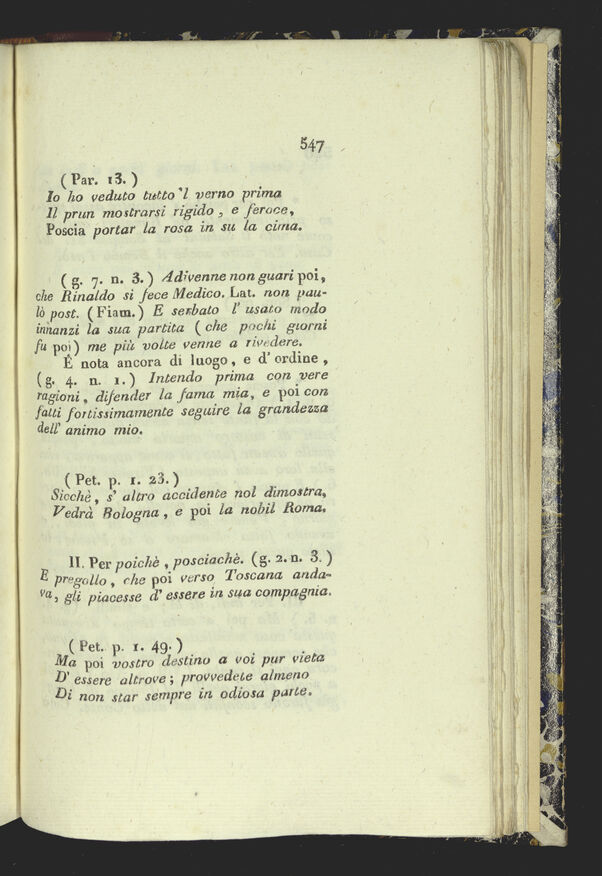 547
( Par. 13. )
Io ho veduto tutto 'l verno prima
Il prun mostrarsi rigido, e feroce,
Poscia portar la rosa in su la cima.
( g. 7. n. 3. ) Adivenne non guari poi,
che Rinaldo si fece Medico. Lat. non pau-
lò post. ( Fiam. ) E serbato l' usato modo
innanzi la sua partita ( che pochi giorni
fu poi ) me più volte venne a rivedere.
È nota ancora di luogo, e d' ordine,
( g. 4. n. 1. ) Intendo prima con vere
ragioni, difender la fama mia, e poi con
fatti fortissimamente seguire la grandezza
dell' animo mio.
( Pet. p. 1. 23. )
Sicchè, s' altro accidente nol dimostra,
Vedrà Bologna, e poi la nobil Roma.
II. Per poichè, posciachè. (g. 2. n. 3. )
E pregollo, che poi verso Toscana anda-
va, gli piacesse d' essere in sua compagnia.
( Pet. p. 1. 49. )
Ma poi vostro destino a voi pur vieta
D' essere altrove; provvedete almeno
Di non star sempre in odiosa parte.